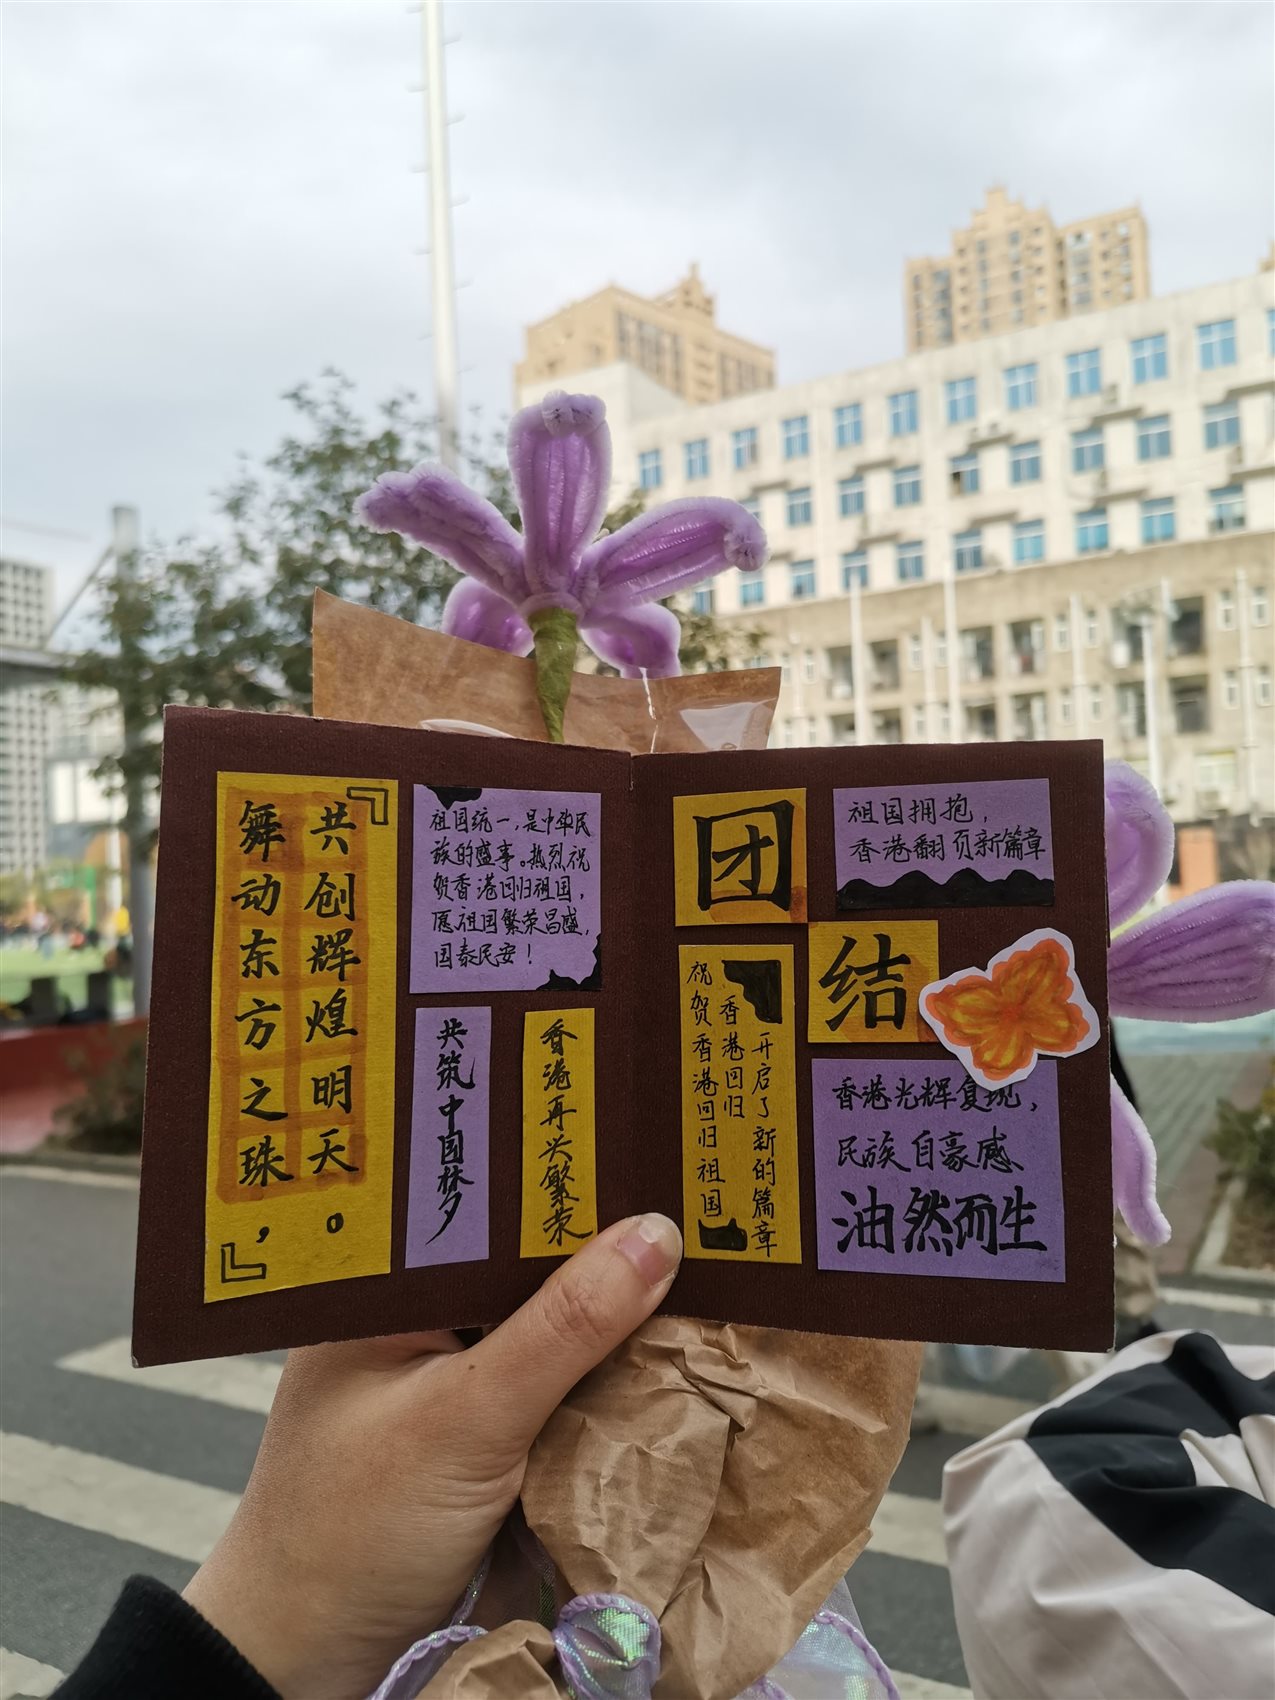 『舞动东方之珠,
共创辉煌明天。』
祖国统一,是中华民
族的盛事。热烈祝
贺香港回归祖国,
愿祖国繁荣昌盛,
国泰民安!
共筑中国梦
香港再兴繁荣
团
结
祖国拥抱,
香港翻页新篇章
祝贺香港回归祖国
香港回归
开启了新的篇章
香港光辉复现,
民族自豪感
油然而生